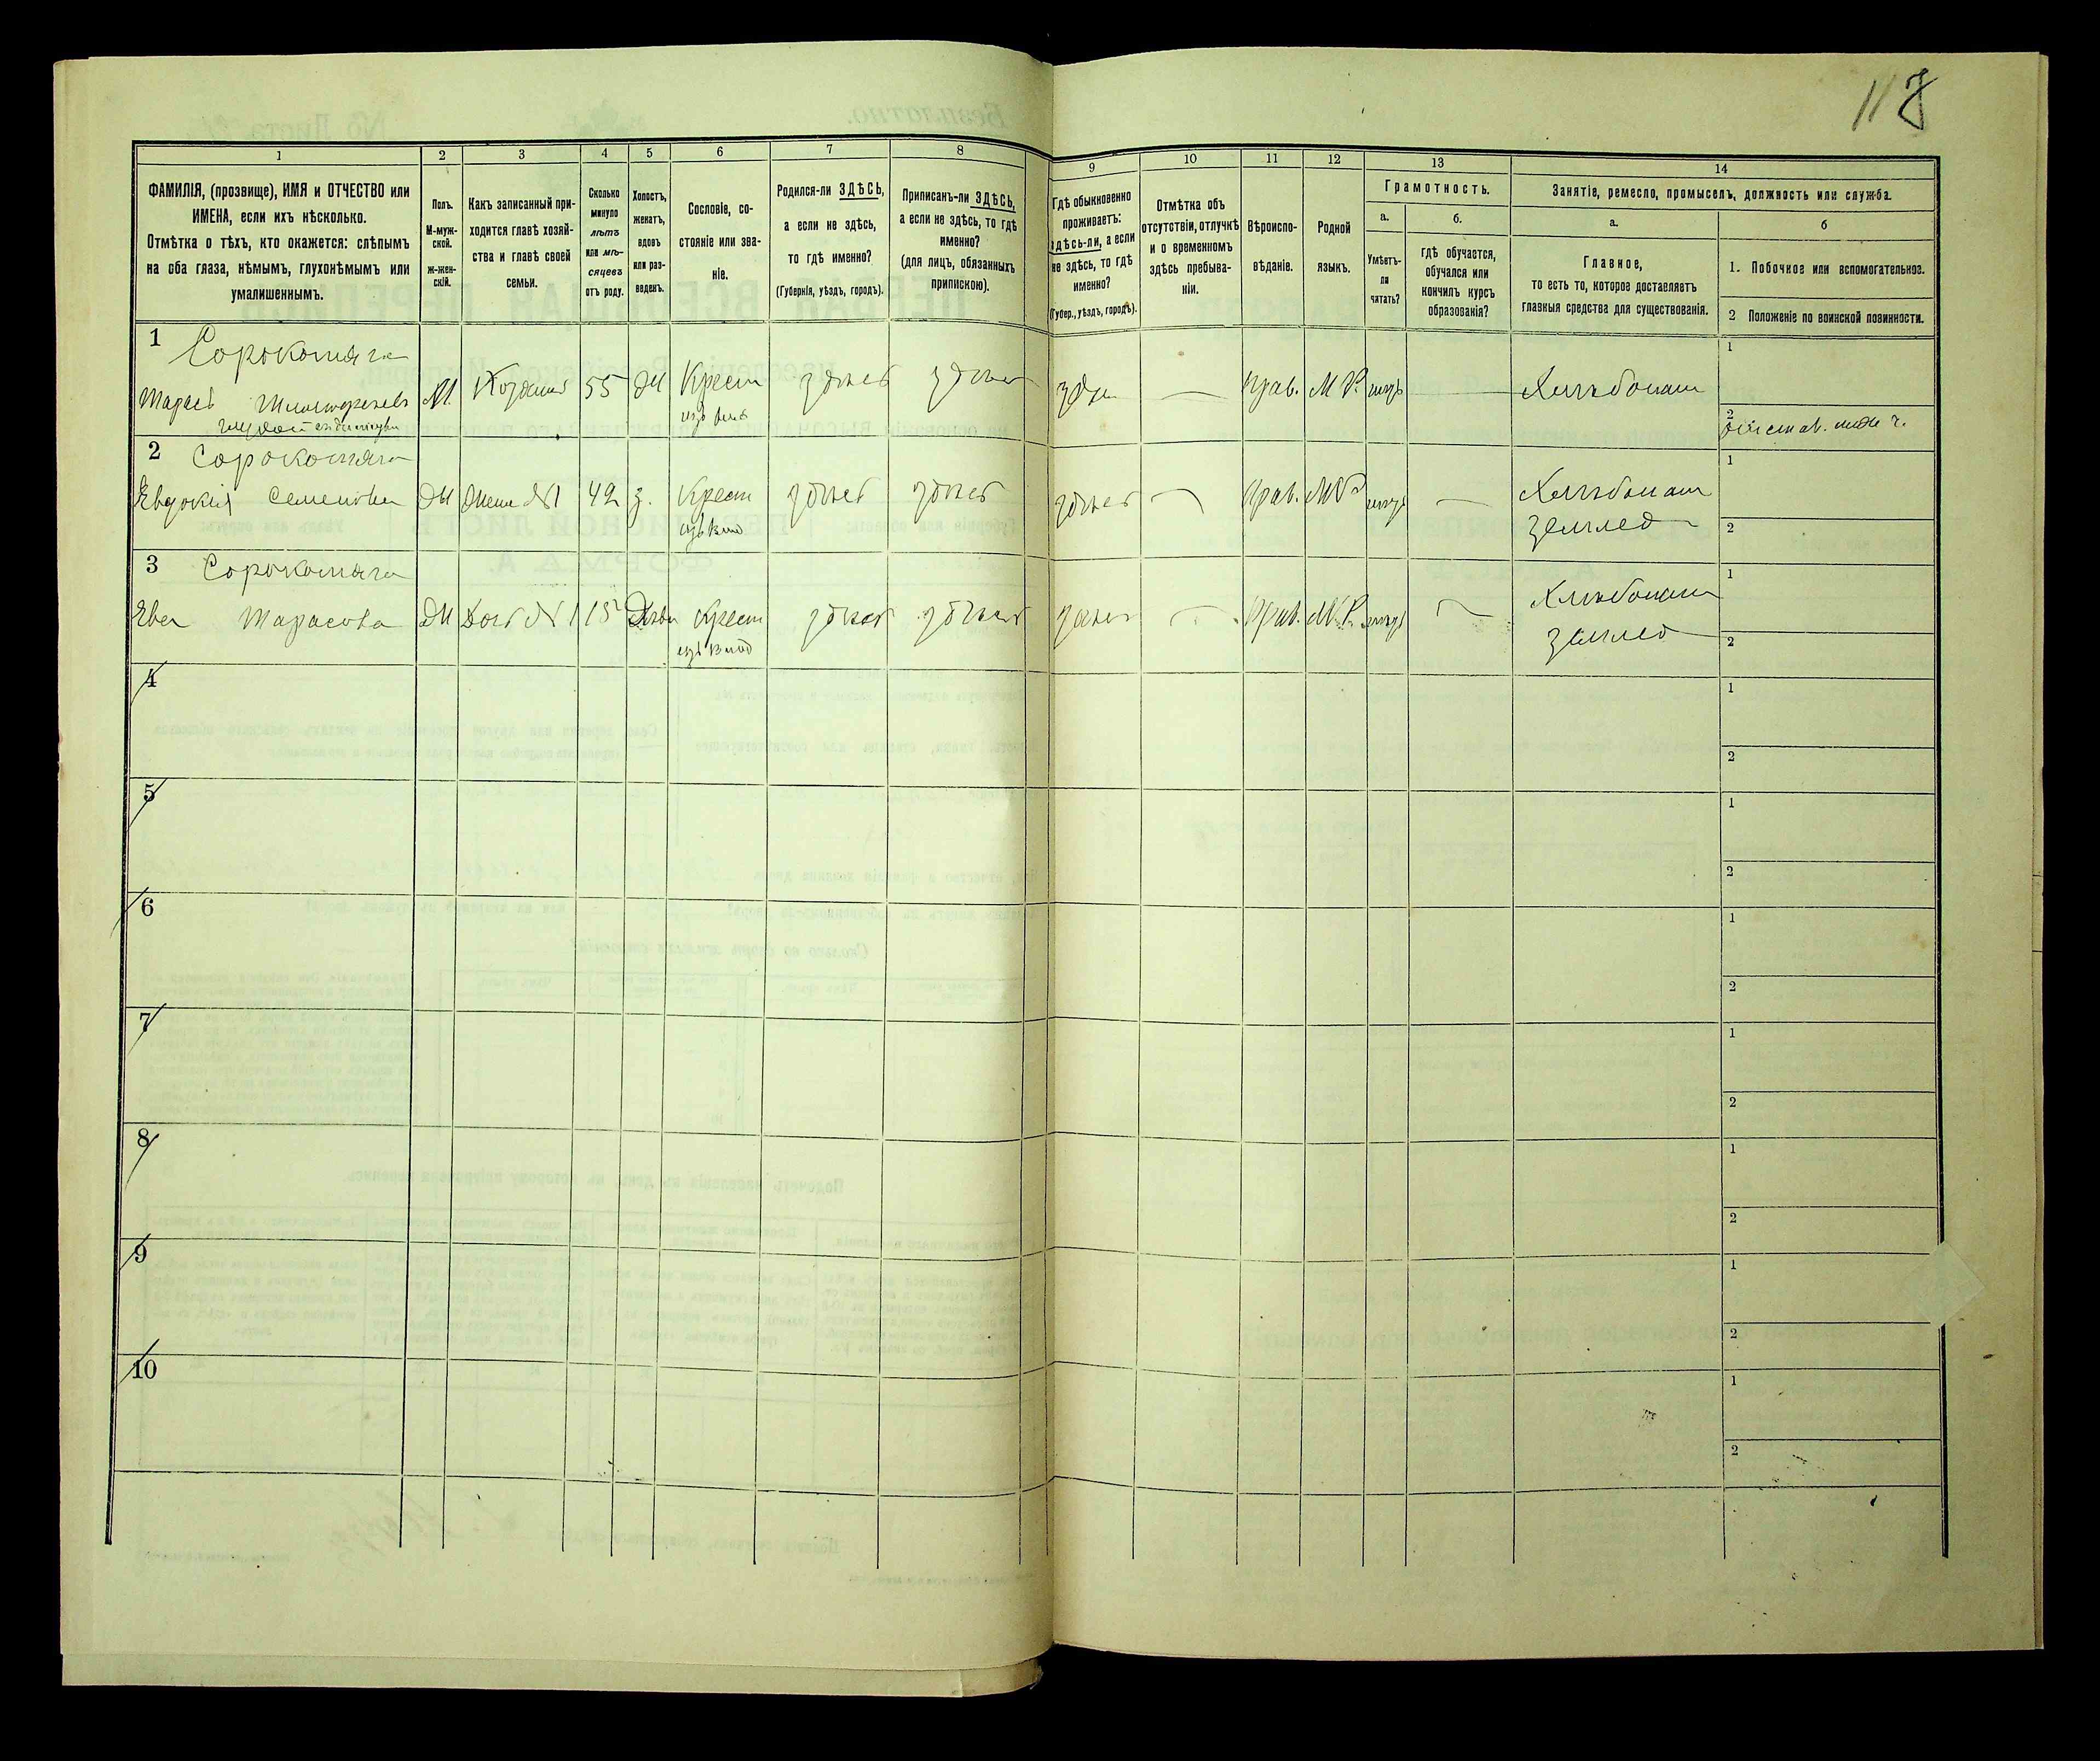 118
1
2
3
4
5
6
7
8
9
10
11
12
13
14
ФАМИЛІЯ, (прозвище), ИМЯ и ОТЧЕСТВО или
ИМЕНА, если ихъ нѣсколько.
Отмѣтка о тѣхъ, кто окажется: слѣпымъ
на оба глаза, нѣмымъ, глухонѣмымъ или
умалишеннымъ.
Полъ.
М-муж-
ской.
ж-жен-
скій.
Какъ записанный при-
ходится главѣ хозяй-
ства и главѣ своей
семьи.
Сколько
минуло
лѣтъ
или мѣ-
сяцевъ
отъ роду.
Холостъ,
женатъ,
вдовъ
или раз-
веденъ.
Сословіе, со-
стояніе или зва-
ніе.
Родился-ли ЗДѢСЬ,
а если не здѣсь,
то гдѣ именно?
(Губернія, уѣздъ, городъ).
Приписанъ-ли ЗДѢСЬ,
а если не здѣсь, то гдѣ
именно?
(для лицъ, обязанныхъ
припискою).
Гдѣ обыкновенно
проживаетъ:
здѣсь-ли, а если
не здѣсь, то гдѣ
именно?
(Губер., уѣздъ, городъ).
Отмѣтка объ
отсутствіи, отлучкѣ
и о временномъ
здѣсь пребыва-
ніи.
Вѣроиспо-
вѣданіе.
Родной
языкъ.
Грамотность.
а.
Умѣетъ-
ли
читать?
б.
гдѣ обучается,
обучался или
кончилъ курсъ
образованія?
Занятіе, ремесло, промыселъ, должность или служба.
а.
Главное,
то есть то, которое доставляетъ
главныя средства для существованія.
б
1. Побочное или вспомогательное.
2 Положеніе по воинской повинности.
1
Сорокотяга
Тарасъ
М. Хозяинъ 55 Ж Крест здѣсь здѣсь здѣсь — Прав. М Р. нѣтъ — Хлѣбопаш
1
2
2 Сорокотяга
Евдокія Семенова Ж Жена №1 42 з. Крест здѣсь здѣсь здѣсь — Прав. МР нѣтъ — Хлѣбопаш
землед
1
2
3 Сорокотяга
Ева Тарасова Ж Дочь №1 15 Дѣви Крест здѣсь здѣсь здѣсь — Прав. М.Р. нѣтъ — Хлѣбопаш
землед
1
2
4
1
2
5
1
2
6
1
2
7
1
2
8
1
2
9
1
2
10
1
2